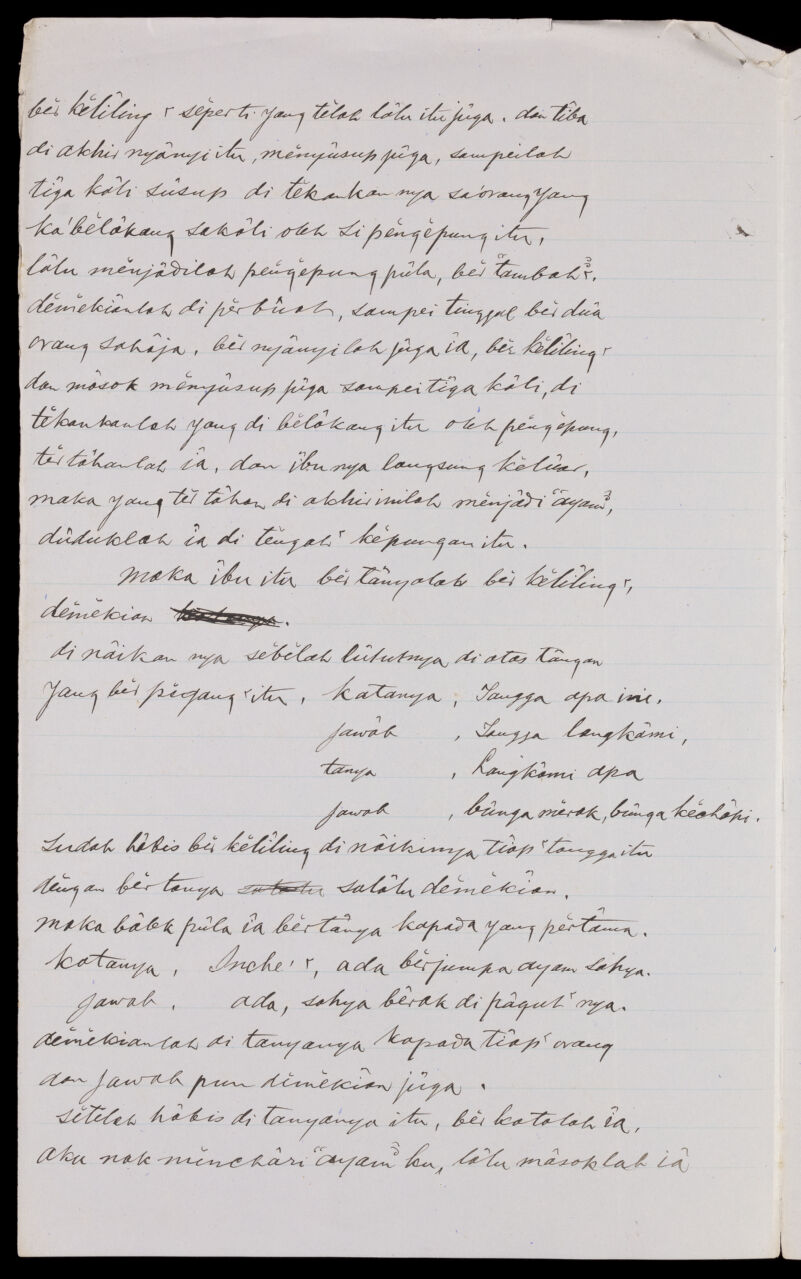 bĕr kĕlīling ٢ sĕpĕrti yang tĕlah lālu itu jūga. dan tība
di akhir nyānyi itu, mĕnyūsup jūga, sampeilah
tīga kāli sūsup di tĕkankan nya saʼorang yang
kaʼbĕlākang sakāli oleh si pĕngĕpung itu,
lālu mĕnjādilah pĕngĕpung pūla, bĕr tambah ٢.
dĕmĕkīanlah di pĕrbūat, sampei tinggal bĕr dūa
orang sahāja, bĕr nyānyilah jūga īa, bĕr kĕlīling ٢
dan māsok mĕnyūsup jūga sampei tīga kāli, di
tĕkankanlah yang di bĕlākang itu oleh pĕngĕpung,
tĕr tāhanlah īa, dan ību nya langsung kĕlūar,
maka yang tĕr tāhan di akhir inilah mĕnjādi "āyam",
dūduklah īa di tĕngah ٢ kĕpungan itu.
Maka ību itu bĕr tānyalah bĕr kĕlīling ٢,
dĕmĕkian.
di nāikan nya sĕbĕlah lūtutnya di atas tāngan
yang bĕr pĕgang ٢ itu, katanya, Tangga apa ini.
jawāb, Tangga langkāmi,
tanya, Langkāmi apa
jawab, būnga mērak, būnga kĕchāpi.
Sudah hābis bĕr kĕlīling di nāikinya tīap ٢ tangga itu
dĕngan bĕr tanya salālu dĕmĕkīan.
maka bālek pūla īa bĕr tānya kapada yang pĕrtāma.
katanya, Incheʼ ٢, ada bĕrjumpa ayam sahya.
jawab. ada, sahya bērak di pāgut ٢ nya.
dĕmĕkianlah di tanyanya kapada tīap ٢ orang
dan jawab pun dĕmĕkīan jūga.
Sĕtĕlah hābis di tanyānya itu, bĕr katalah īa,
aku nak mĕnchāri "āyam" ku, lālu māsoklah īa